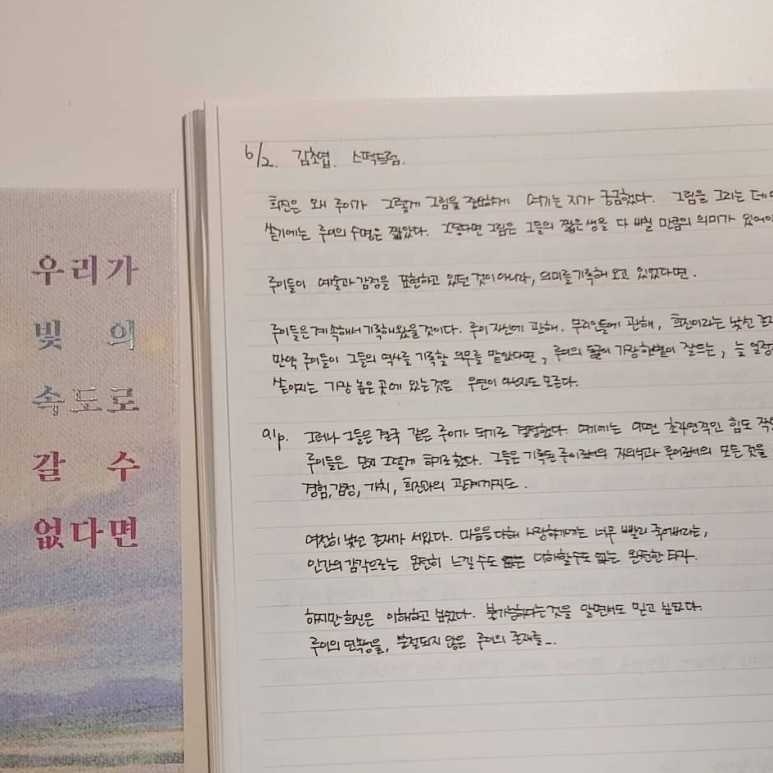 우리가
빛의
속도로
갈 수
없다면
6/2. 김초엽. 스펙트럼.
희진은 왜 루이가 그렇게 그림을 중요하게 여기는 지가 궁금했다. 그림을 그리는 데에
쏟기에는 루이의 수명은 짧았다. 그렇다면 그림은 그들의 짧은 생을 다 바칠 만큼의 의미가 있어야
루이들이 예술과 감정을 표현하고 있던 것이 아니라, 의미를 기록해 오고 있었다면.
루이들은 계속해서 기록해왔을 것이다. 루이 자신에 관해. 무리인들에 관해, 희진이라는 낯선 존재
만약 루이들이 그들의 역사를 기록할 의무를 맡았다면, 루이의 가장 햇볕이 잘 드는, 늘
쏟아지는 가장 높은 곳에 있는 것은 우연이 아닐지도 모른다.
91p. 그러나 그들은 결국 같은 루이가 되기로 결정했다. 여기에는 어떤 초자연적인 힘도
루이들은 단지 그렇게 하기로 했다. 그들은 기록된 루이로서의 자의식과 루이로서의 모든 것을
경험, 감정, 가치, 희진과의 관계까지도.
여전히 낯선 존재가 서있다. 마음을 다해 사랑하기에는 너무 빨리 죽어버리는,
인간의 감각으로는 온전히 느낄 수도 없는 이해할 수도 없는 완전한 타자.
하지만 희진은 이해하고 싶었다. 불가능하다는 것을 알면서도 믿고 싶었다.
루이의 연속성을, 분절되지 않은 루이의 존재를_.